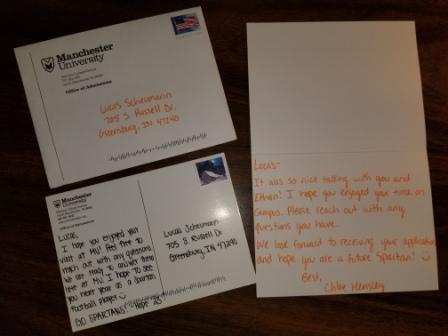 Manchester
University
Office of Admissions
Lucas Scheumann
705 S Russell Dr.
Greensburg, IN 47240
Manchester
University
Lucas,
I hope you enjoyed your
visit at MU! Feel free to
reach out with any questions
we are ready to answer them
here at MU. I hope to see
you next year as a Spartan
football player
GO SPARTANS!
Lucas Scheumann
705 S Russell Dr
Greensburg, IN 47240
Lucas-
It was so nice talking with you and
Ethan! I hope you enjoyed your time on
campus. Please reach out with any
questions you have.
We look forward to receiving your application
and hope you are a future Spartan!
Best,
Chloe Hensley